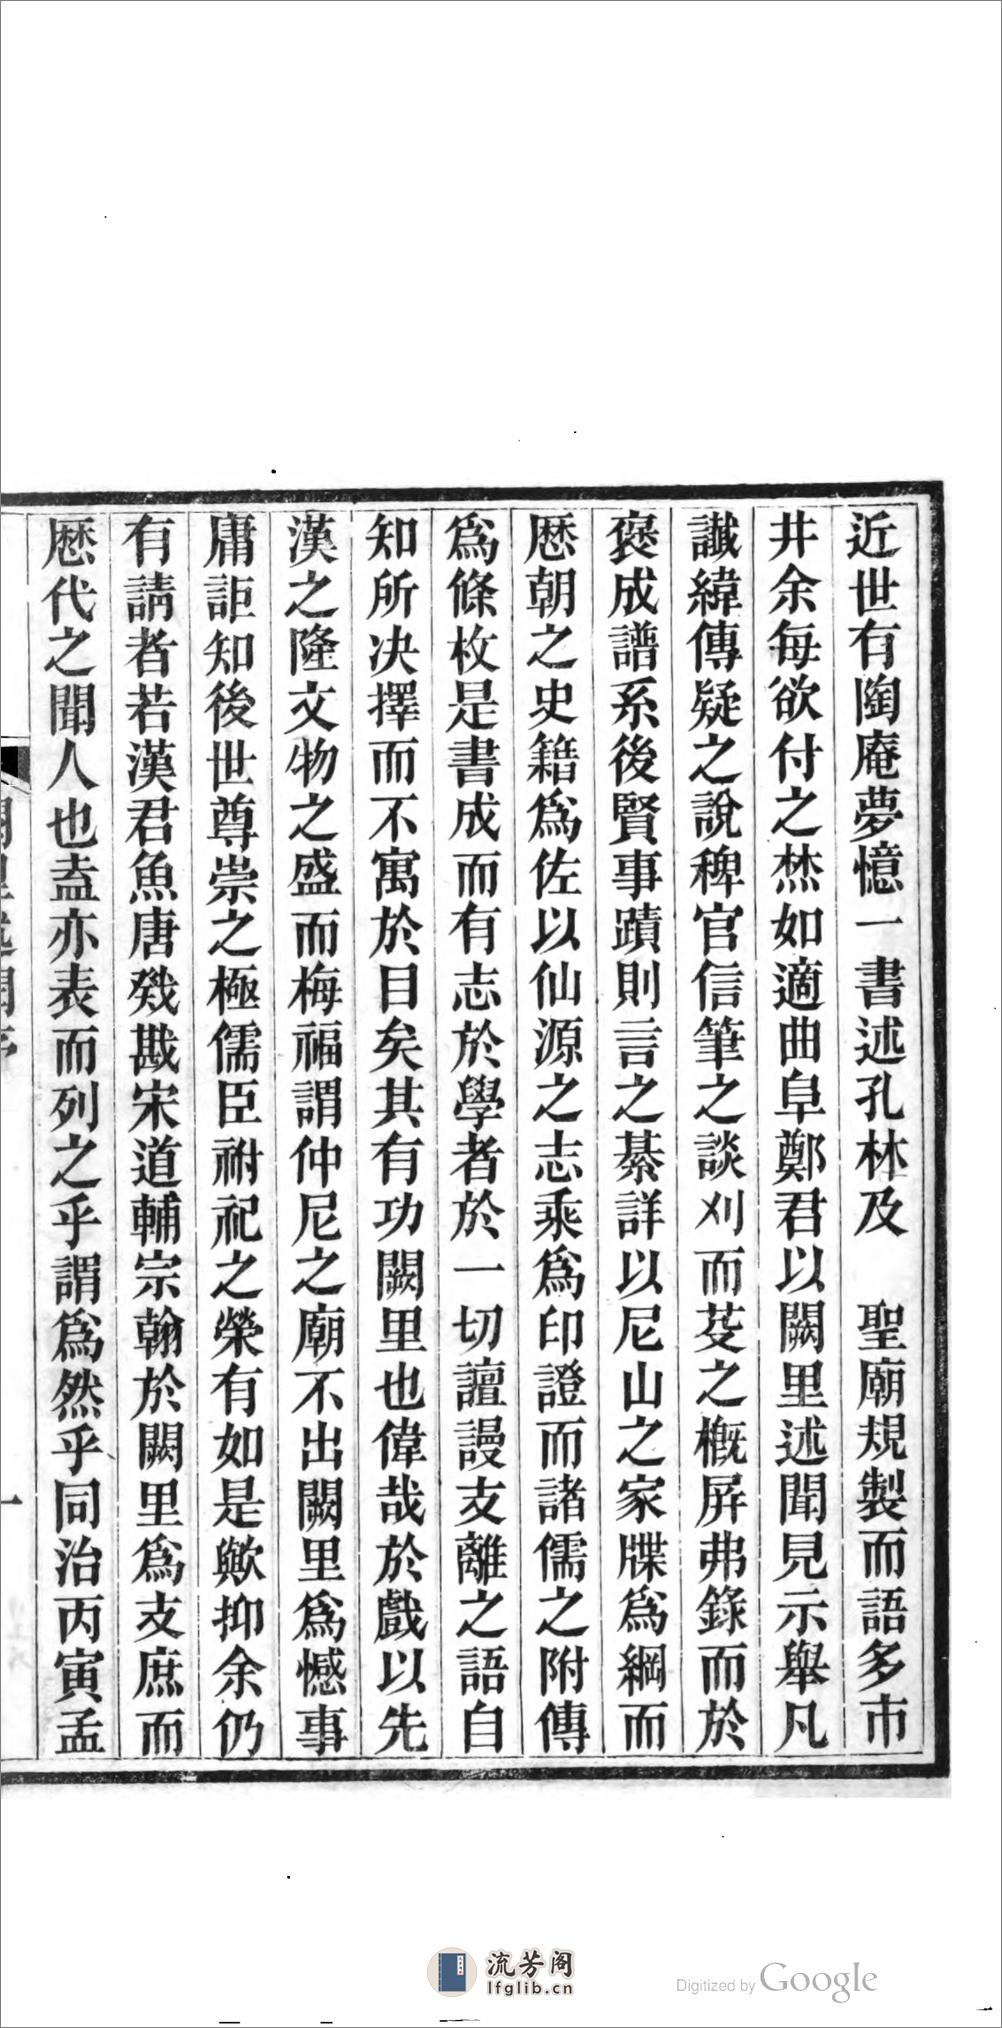 近世有陶庵夢憶一書述孔林及　聖廟規製而語多市
井余每欲付之焚如適曲阜鄭君以闕里述聞見示舉凡
讖緯傳疑之說稗官信筆之談刈而芟之槪屏弗錄而於
褒成譜系後賢事蹟則言之綦詳以尼山之家牒爲綱而
歷朝之史籍爲佐以仙源之志乘爲印證而諸儒之附傳
爲條枚是書成而有志於學者於一切譠謾支離之語自
知所决擇而不寓於目矣其有功闕里也偉哉於戲以先
漢之隆文物之盛而梅福謂仲尼之廟不出闕里爲憾事
庸詎知後世尊崇之極儒臣祔祀之榮有如是歟抑余仍
有請者若漢君魚唐戣戡宋道輔宗翰於闕里爲支庶而
歷代之聞人也盍亦表而列之乎謂爲然乎同治丙寅孟
闕里述聞序
一
流芳阁
lfglib.cn
Digitized by Google